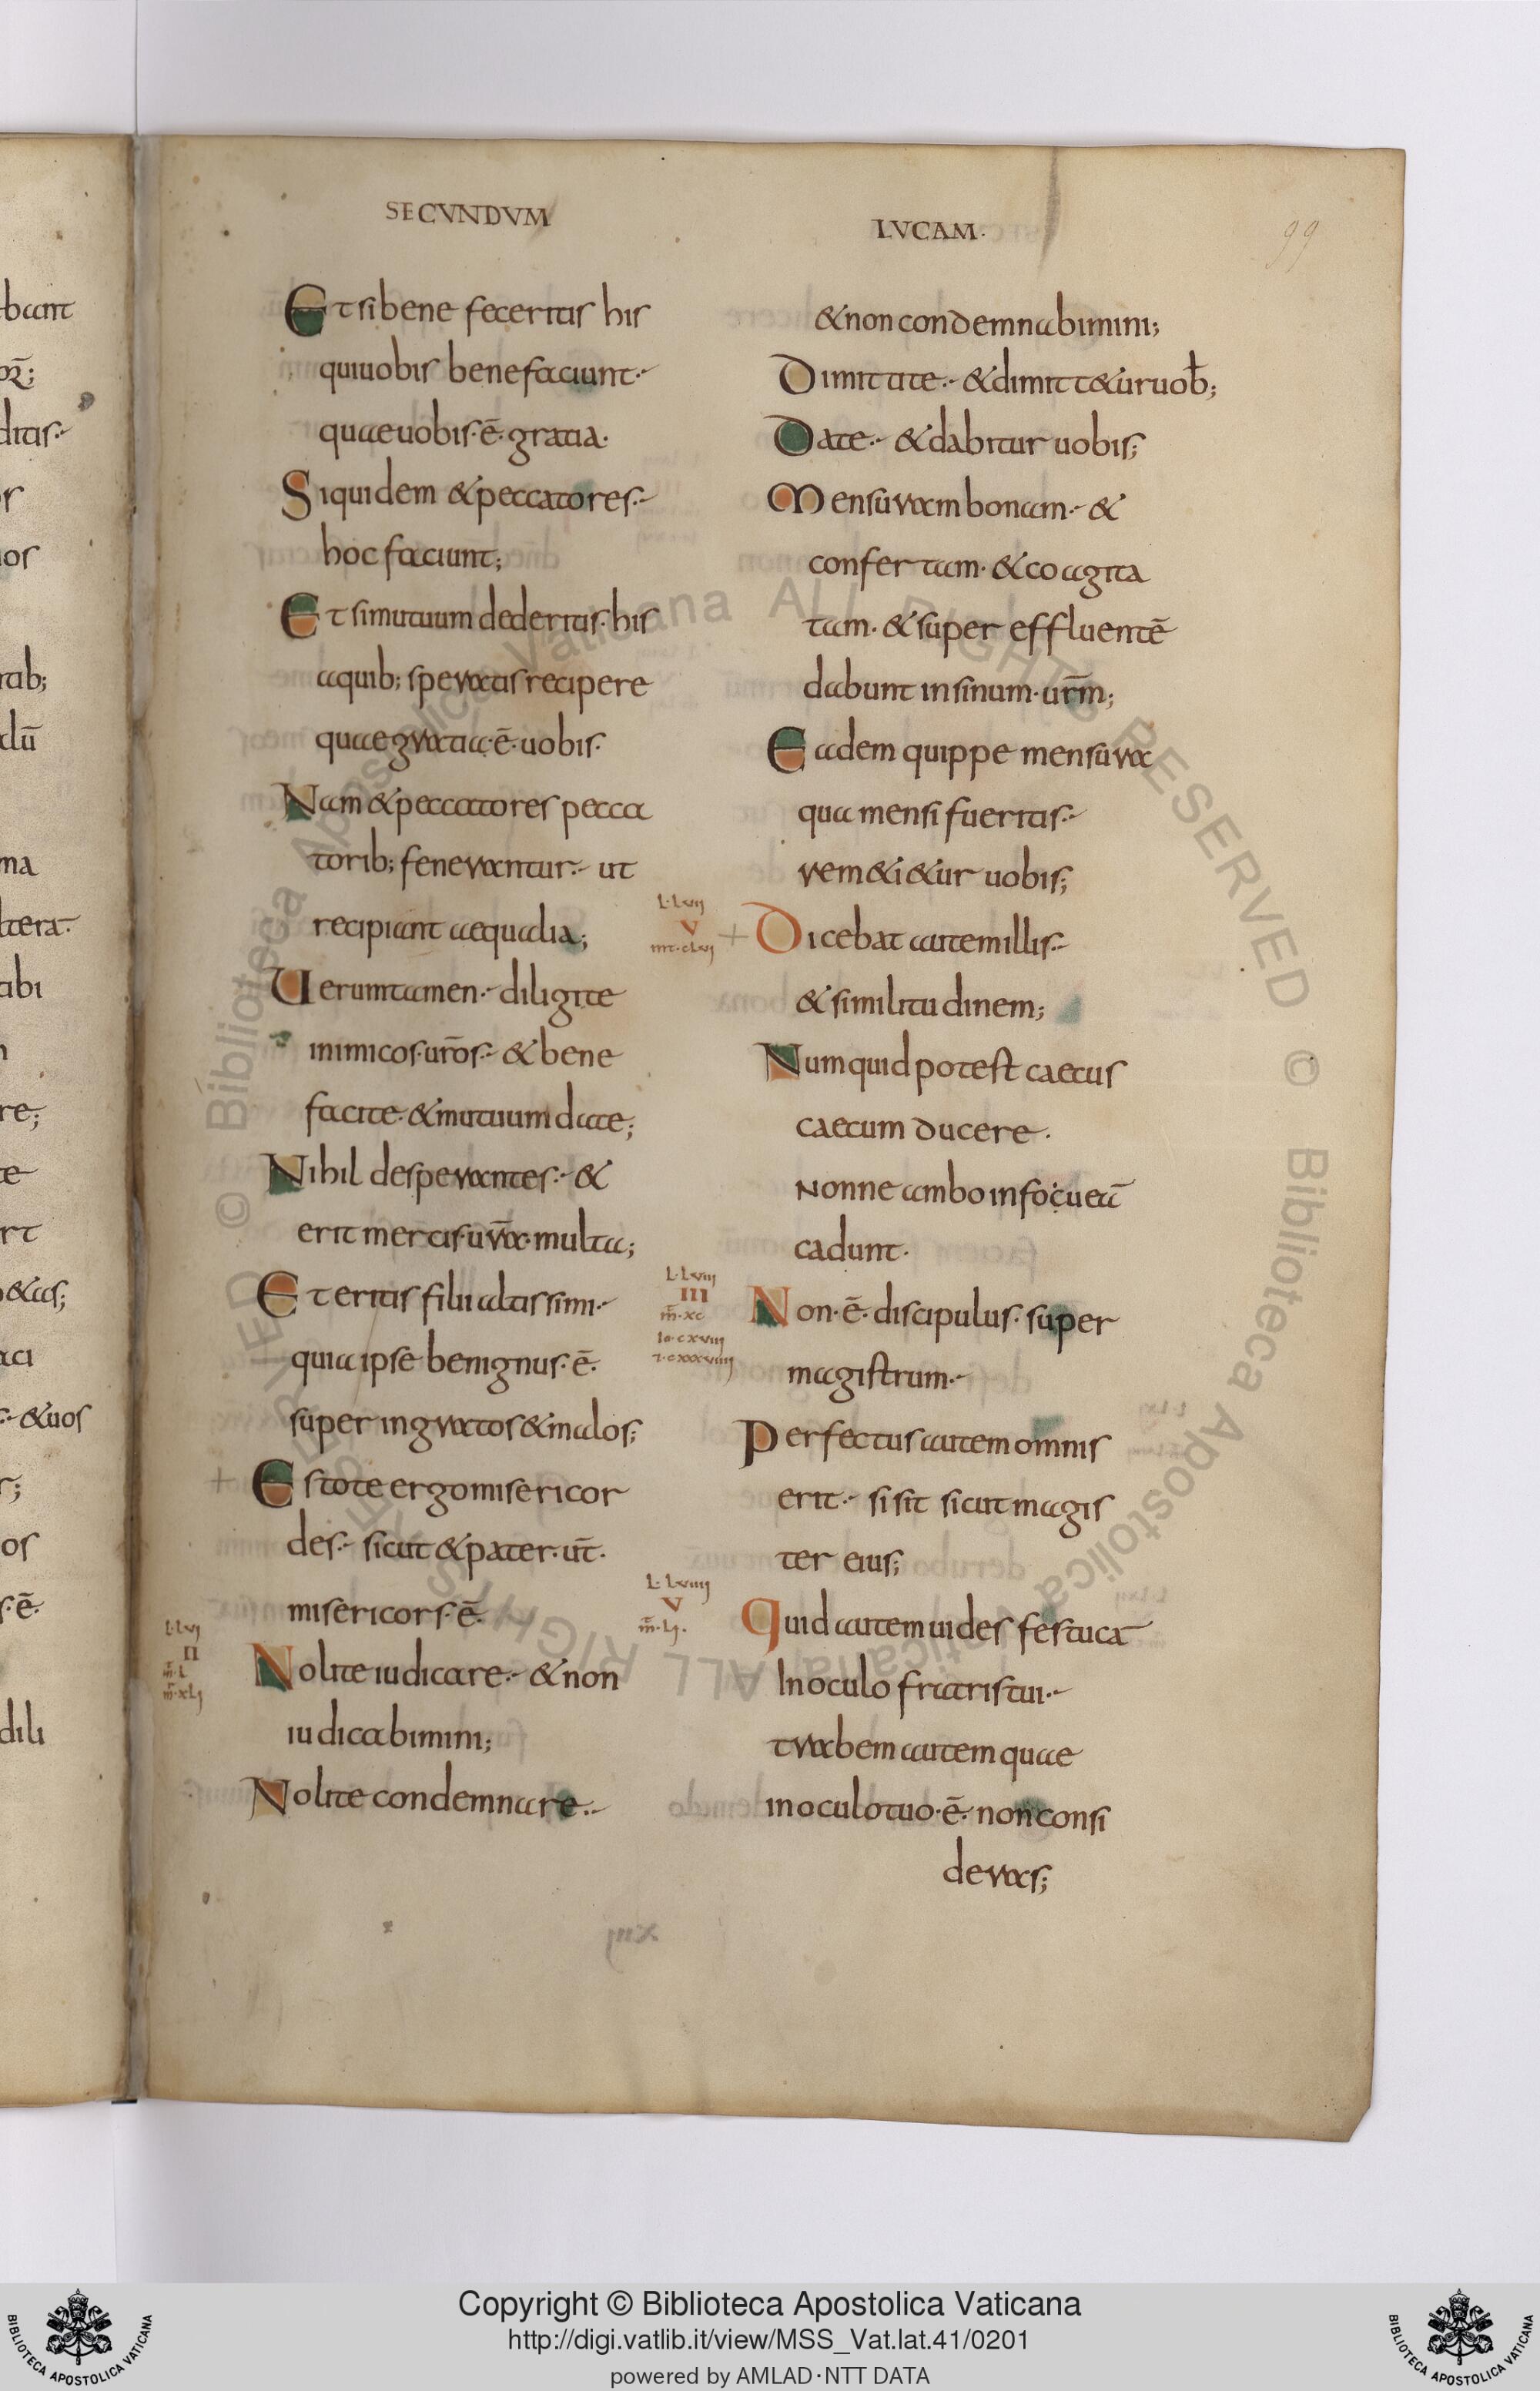 SECVNDVM
Et si bene feceritis his
qui uobis bene faciunt·
quae uobis·ē·gratia·
Siquidem & peccatores·
hoc faciunt;
Et si mutuum dederitis·his
a quib; speratis recipere
quae gratia·ē·uobis·
Nam & peccatores pecca
torib; fenerantur· ut
recipiant aequalia;
Uerumtamen· diligite
inimicos·ur̄os· & bene
facite·& mutuum date;
Nihil desperantes· &
erit mercis·ur̄a·multa;
Et eritis filii altissimi·
quia ipse benignus·ē·
super ingratos & malos;
+ Estote ergo misericor
des· sicut & pater·ur̄·
misericors·ē·
L·Lvij
II
m̄·L
m̄·xLj
Nolite iudicare· & non
iudicabimini;
Nolite condemnare·
LVCAM·
99
& non condemnabimini;
Dimittite· & dimitt&ur uob̄;
Date· & dabitur uobis;
Mensuram bonam· &
confertam·& coagita
tam·& super effluentē
dabunt in sinum·ur̄m;
Eadem quippe mensura
qua mensi fueritis·
rem&i&ur uobis;
L·Lvij
V
mt·cLvj
+ Dicebat autem illis·
& similitudinem;
Numquid potest caecus
caecum ducere·
Nonne ambo in foueā
cadunt·
L·Lviij
III
m̄·xc
Io·cxviij
7·cxxxviiij
Non·ē·discipulus·super
magistrum·
Perfectus autem omnis
erit· si sit sicut magis
ter eius;
L·Lviiij
V
m̄·Lj·
Quid autem uides festucā
In oculo fratris tui·
trabem autem quae
in oculo tuo·ē·non consi
deras;
xiij
© Biblioteca Apostolica Vaticana ALL RIGHTS RESERVED © Biblioteca Apostolica Vaticana ALL RIGHTS RESERVED
Copyright © Biblioteca Apostolica Vaticana
http://digi.vatlib.it/view/MSS_Vat.lat.41/0201
powered by AMLAD·NTT DATA
BIBLIOTECA APOSTOLICA VATICANA
BIBLIOTECA APOSTOLICA VATICANA